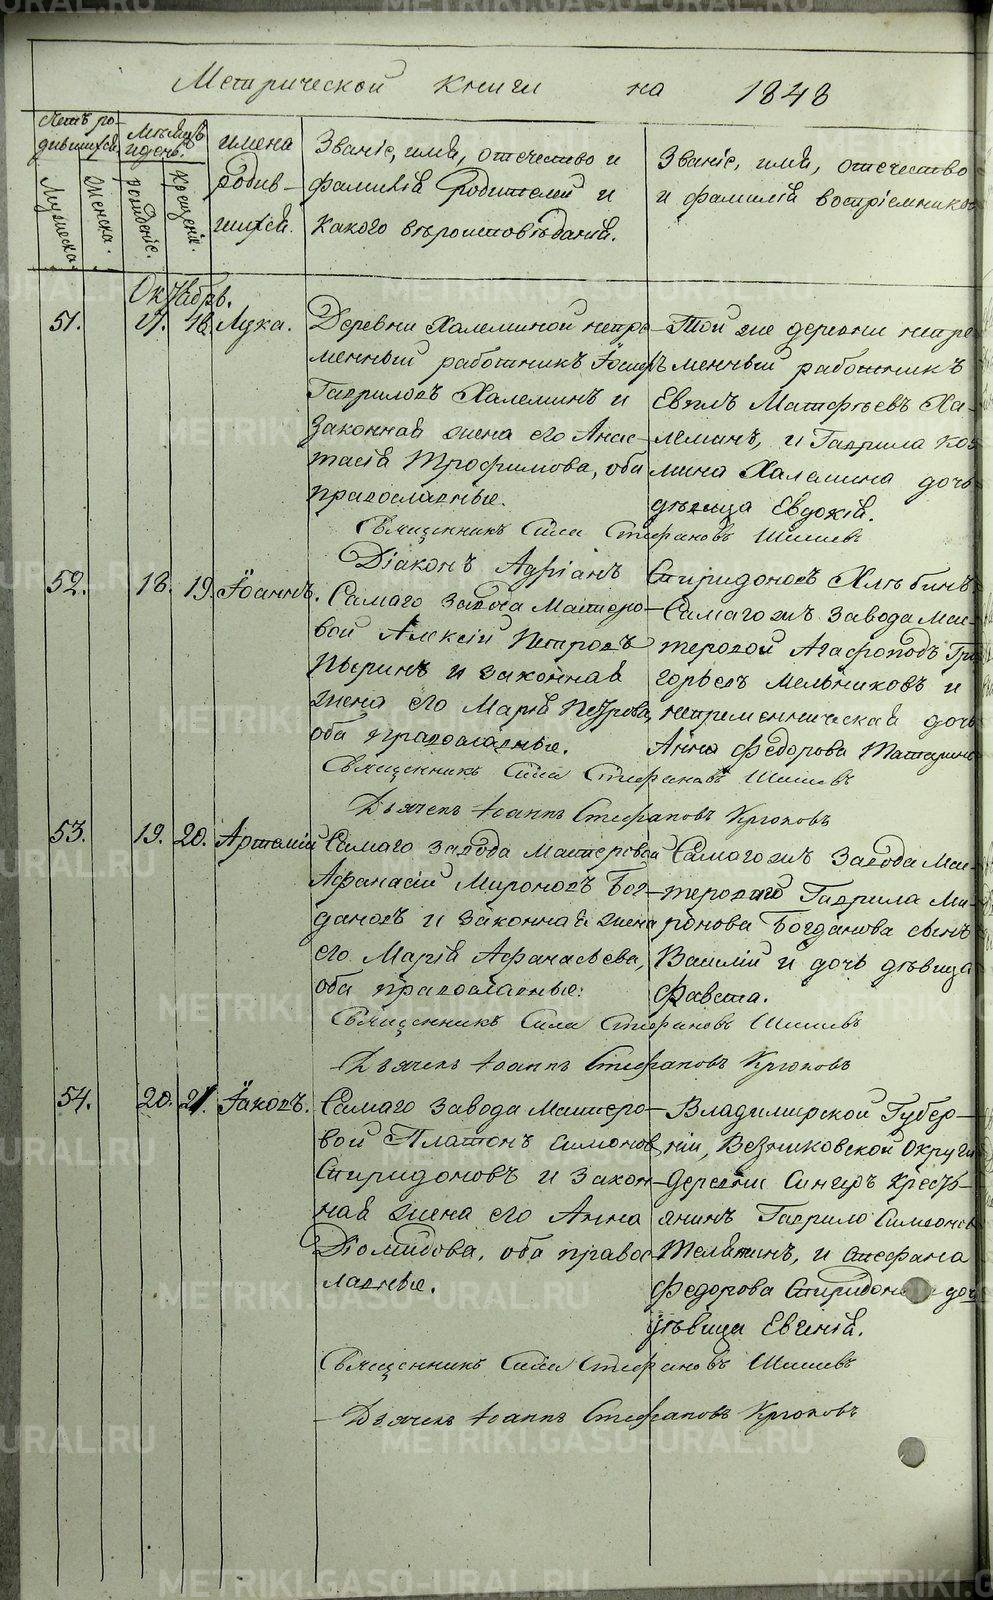 Метрической книги на 1848
Счетъ ро-
дившихся.
Мужеска.
Женска.
Мѣсяцъ
и день.
рожденіе.
Крещеніе.
имена
родив-
шихся.
Званіе, имя, отечество и
фамилія родителей и
какого вѣроисповѣданія.
Званіе, имя, отечество
и фамилія воспріемниковъ
Октябрь.
51. 17. 18. Лука.
Деревни Халеминой непре-
менный работникъ Іосифъ
Гавриловъ Халеминъ и
законная жена его Анас-
тасія Трофимова, оба
православные.
Той же деревни непре-
менный работникъ
Евелъ Матфѣевъ Ха-
леминъ, и Гаврила
Халемина дочь
дѣвица Евдокія.
Священникъ Сила Стефановъ Шишевъ
Діаконъ Адріанъ Спиридоновъ Хлѣбинъ
52. 18. 19. Іоаннъ.
Самаго завода мастеро-
вой Алексій Петровъ
Пыринъ и законная
жена его Марія Петрова,
оба православные.
Самаго жъ завода мас-
теровой Агафоподъ Гри
горьевъ Мельниковъ и
непременническая дочь
Анна Федорова Татарина
Священникъ Сила Стефановъ Шишевъ
Дьячекъ Іоаннъ Стефановъ Крюковъ
53. 19. 20. Артемій
Самаго завода мастеровой
Афанасій Мироновъ Бог-
дановъ и законная жена
его Марія Афанасьева,
оба православные:
Самаго жъ завода мас-
тероваго Гаврила Ми-
ронова Богданова сынъ
Василій и дочь дѣвица
Фавста.
Священникъ Сила Стефановъ Шишевъ
Дьячекъ Іоаннъ Стефановъ Крюковъ
54. 20. 21. Іаковъ.
Самаго завода мастеро-
вой Платонъ Симонов
Спиридоновъ и закон-
ная жена его Анна
Діомидова, оба правос
лавные.
Владимирской Губер-
ніи, Везниковской округи
деревни Сингеръ крестъ-
янинъ Гаврило Симеонов
Телятинъ, и Стефана
Федорова Спиридон дочь
дѣвица Евгенія.
Священникъ Сила Стефановъ Шишевъ
Дьячекъ Іоаннъ Стефановъ Крюковъ
METRIKI.GASO-URAL.RU